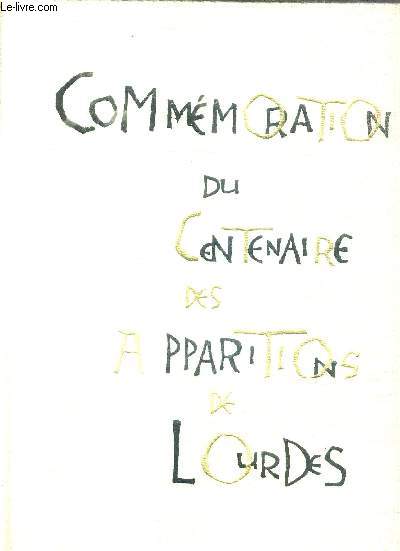 Le-livre.com
COMMÉMORATION
DU
CENTENAIRE
DES
APPARITIONS
DE
LOURDES